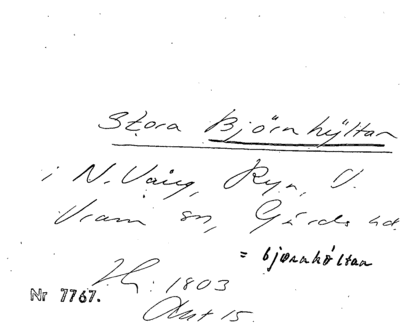 Stora Björnhyltan
i N. Vång, Ryn, V.
Vram sn, Gärds hd.
= bjørnhöltan
1803
Nr 7767.
Akt 15.